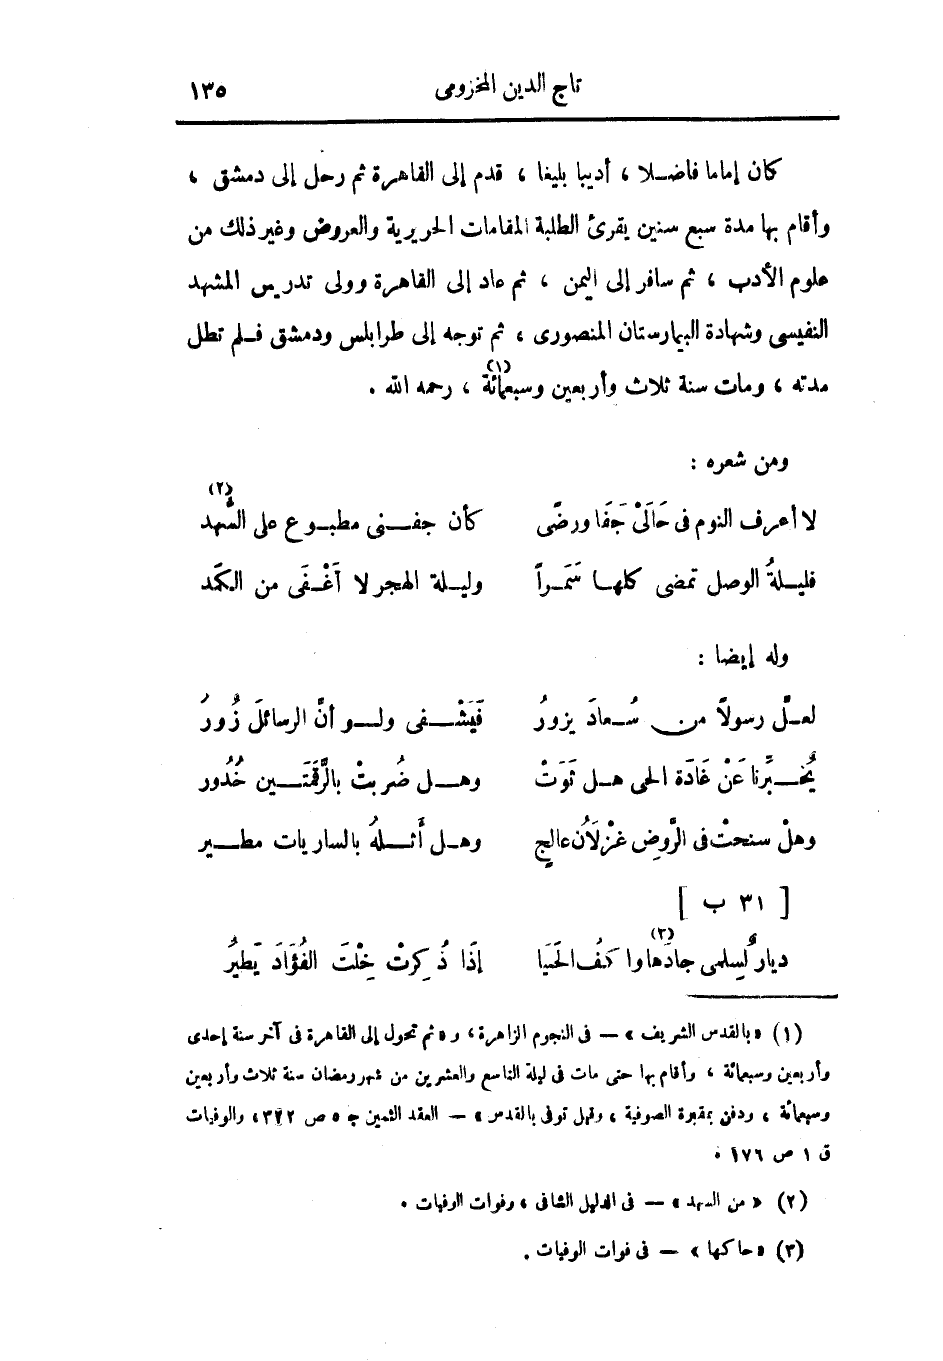 تاج الدين المخزومى ١٣٥
كان إماما فاضلا ، أديبا بليغا ، قدم إلى القاهرة ثم رحل إلى دمشق ،
وأقام بها مدة سبع سنين يقرئ الطلبة المقامات الحريرية والعروض وغير ذلك من
علوم الأدب ، ثم سافر إلى اليمن ، ثم عاد إلى القاهرة وولى تدريس المشهد
النفيسى وشهادة البيمارستان المنصورى ، ثم توجه إلى طرابلس ودمشق فلم تطل
مدته ، ومات سنة ثلاث وأربعين وسبعمائة (١) ، رحمه الله .
ومن شعره :
لا أعرف النوم فى حَالَىْ جَفَا ورضًى كأن جفنى مطبوع على السُّهد (٢)
فليلةُ الوصل تمضى كلها سَمَراً وليلة الهجر لا أَغْفَى من الكمَد
وله إيضا :
لعلَّ رسولاً من سُعادَ يزورُ فَيَشْفى ولو أنَّ الرسائلَ زُورُ
يُخبِّرنا عَنْ غَادَة الحى هل ثَوَتْ وهل ضُربتْ بالرَّقمَتَين خُدُور
وهلْ سنحتْ فى الرَّوضِ غزْلاَن عالجٍ وهل أَثلهُ بالساريات مطير
[ ٣١ ب ]
ديارٌ لسِلمى جادَها (٣) واكفُ الحَيَا إذَا ذُكِرتْ خِلْتَ الفُؤَادَ يَطيرُ
(١) « بالقدس الشريف » — فى النجوم الزاهرة ، و « ثم تحول إلى القاهرة فى آخر سنة إحدى
وأربعين وسبعمائة ، وأقام بها حتى مات فى ليلة التاسع والعشرين من شهر رمضان سنة ثلاث وأربعين
وسبعمائة ، ودفن بمقبرة الصوفية ، وقيل توفى بالقدس » — العقد الثمين ج ٥ ص ٣٢٢ ، والوفيات
ق ١ ص ١٧٦ .
(٢) « من السهد » — فى الدليل الشافى ، وفوات الوفيات .
(٣) « حاكها » — فى فوات الوفيات .